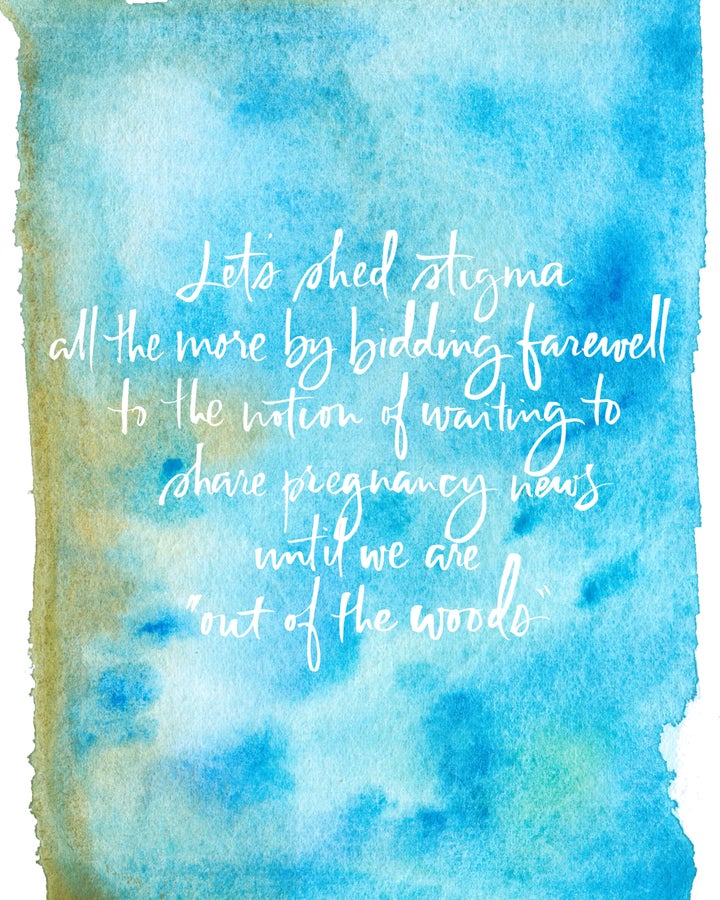 Let's shed stigma
all the more by bidding farewell
to the notion of waiting to
share pregnancy news
until we are
"out of the woods"